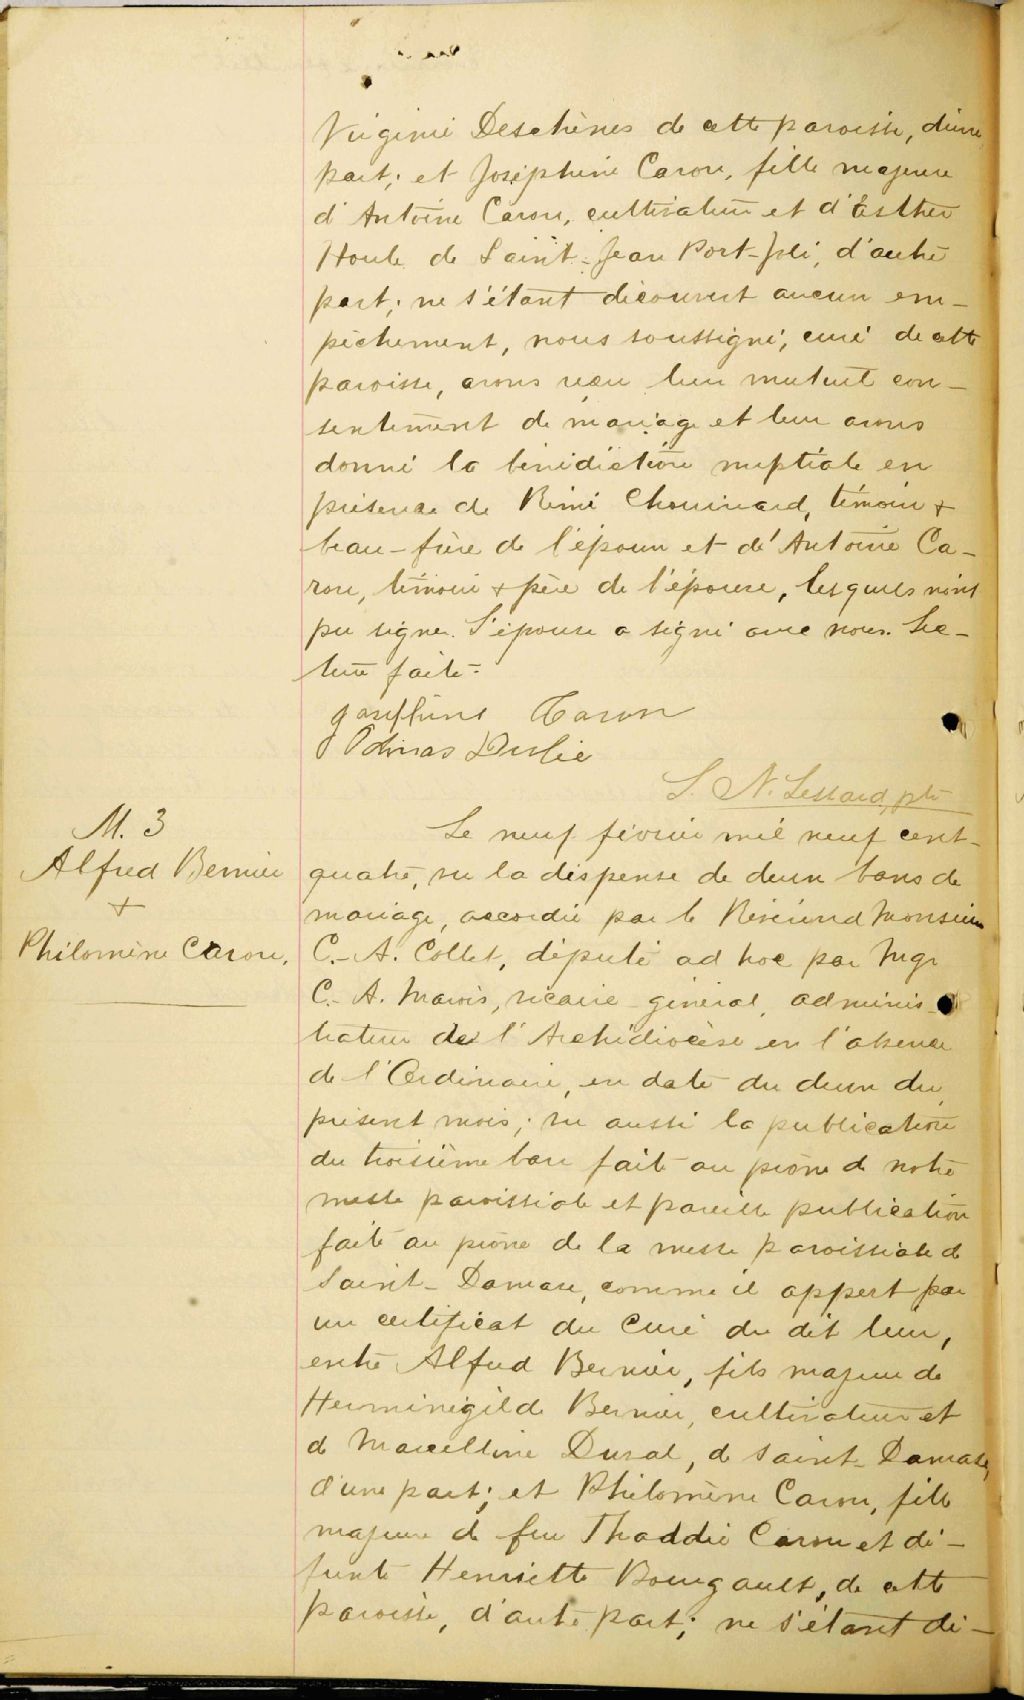 Virginie Deschènes de cette paroisse, d'une
part; et Joséphine Caron, fille majeure
d'Antoine Caron, cultivateur et d'Esther
Houle de Saint-Jean Port-Joli, d'autre
part; ne s'étant découvert aucun em-
pêchement, nous soussigné, curé de cette
paroisse, avons reçu leur mutuel con-
sentement de mariage et leur avons
donné la bénédiction nuptiale en
présence de Rémi Chouinard, témoin +
beau-frère de l'époux et d'Antoine Ca-
ron, témoin + père de l'épouse, lesquels n'ont
pu signer. L'épouse a signé avec nous. Lec-
ture faite.
Joséphine Caron
S. N. Lessard, ptre
M. 3
Alfred Bernier
+
Philomène Caron.
Le neuf février mil neuf cent-
quatre, vu la dispense de deux bans de
mariage, accordée par le Révérend Monsieur
C.-A. Collet, député ad hoc par Mgr
C.-A. Marois, vicaire-général, adminis-
trateur de l'Archidiocèse en l'absence
de l'Ordinaire, en date du deux du
présent mois; vu aussi la publication
du troisième ban faite au prône de notre
messe paroissiale et pareille publication
faite au prône de la messe paroissiale de
Saint-Damase, comme il appert par
un certificat du Curé du dit lieu,
entre Alfred Bernier, fils majeur de
Herménégilde Bernier, cultivateur et
de Marcelline Duval, de Saint-Damase,
d'une part; et Philomène Caron, fille
majeure de feu Thaddée Caron et dé-
funte Henriette Bourgault, de cette
paroisse, d'autre part; ne s'étant dé-